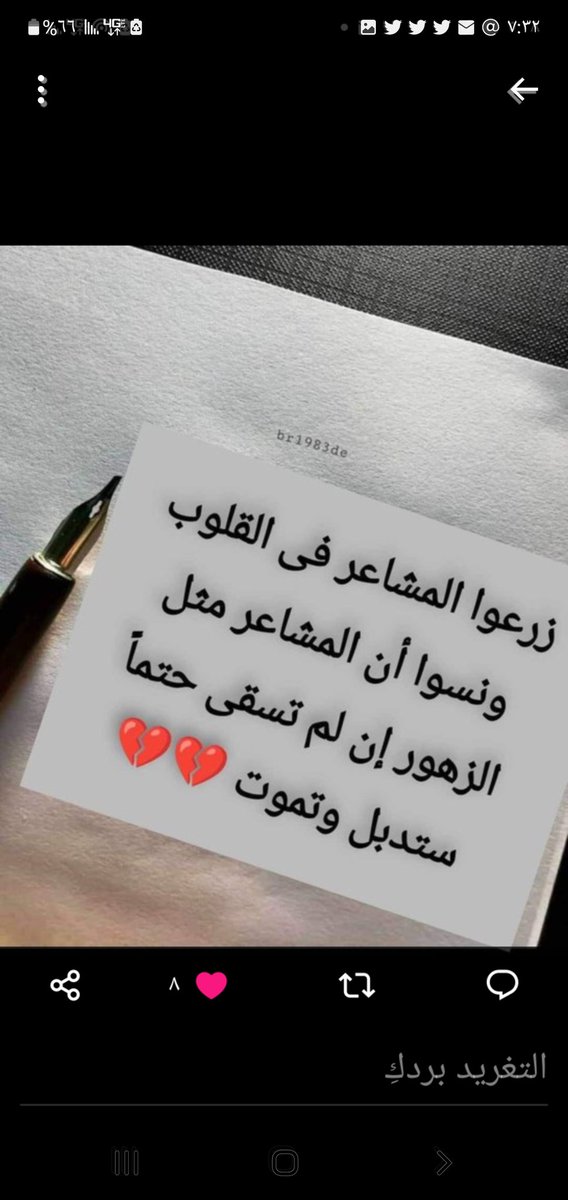 %٦٦ 4G @ ٧:٣٢
br1983de
زرعوا المشاعر فى القلوب
ونسوا أن المشاعر مثل
الزهور إن لم تسقى حتماً
ستدبل وتموت 💔💔
٨
التغريد بردكِ